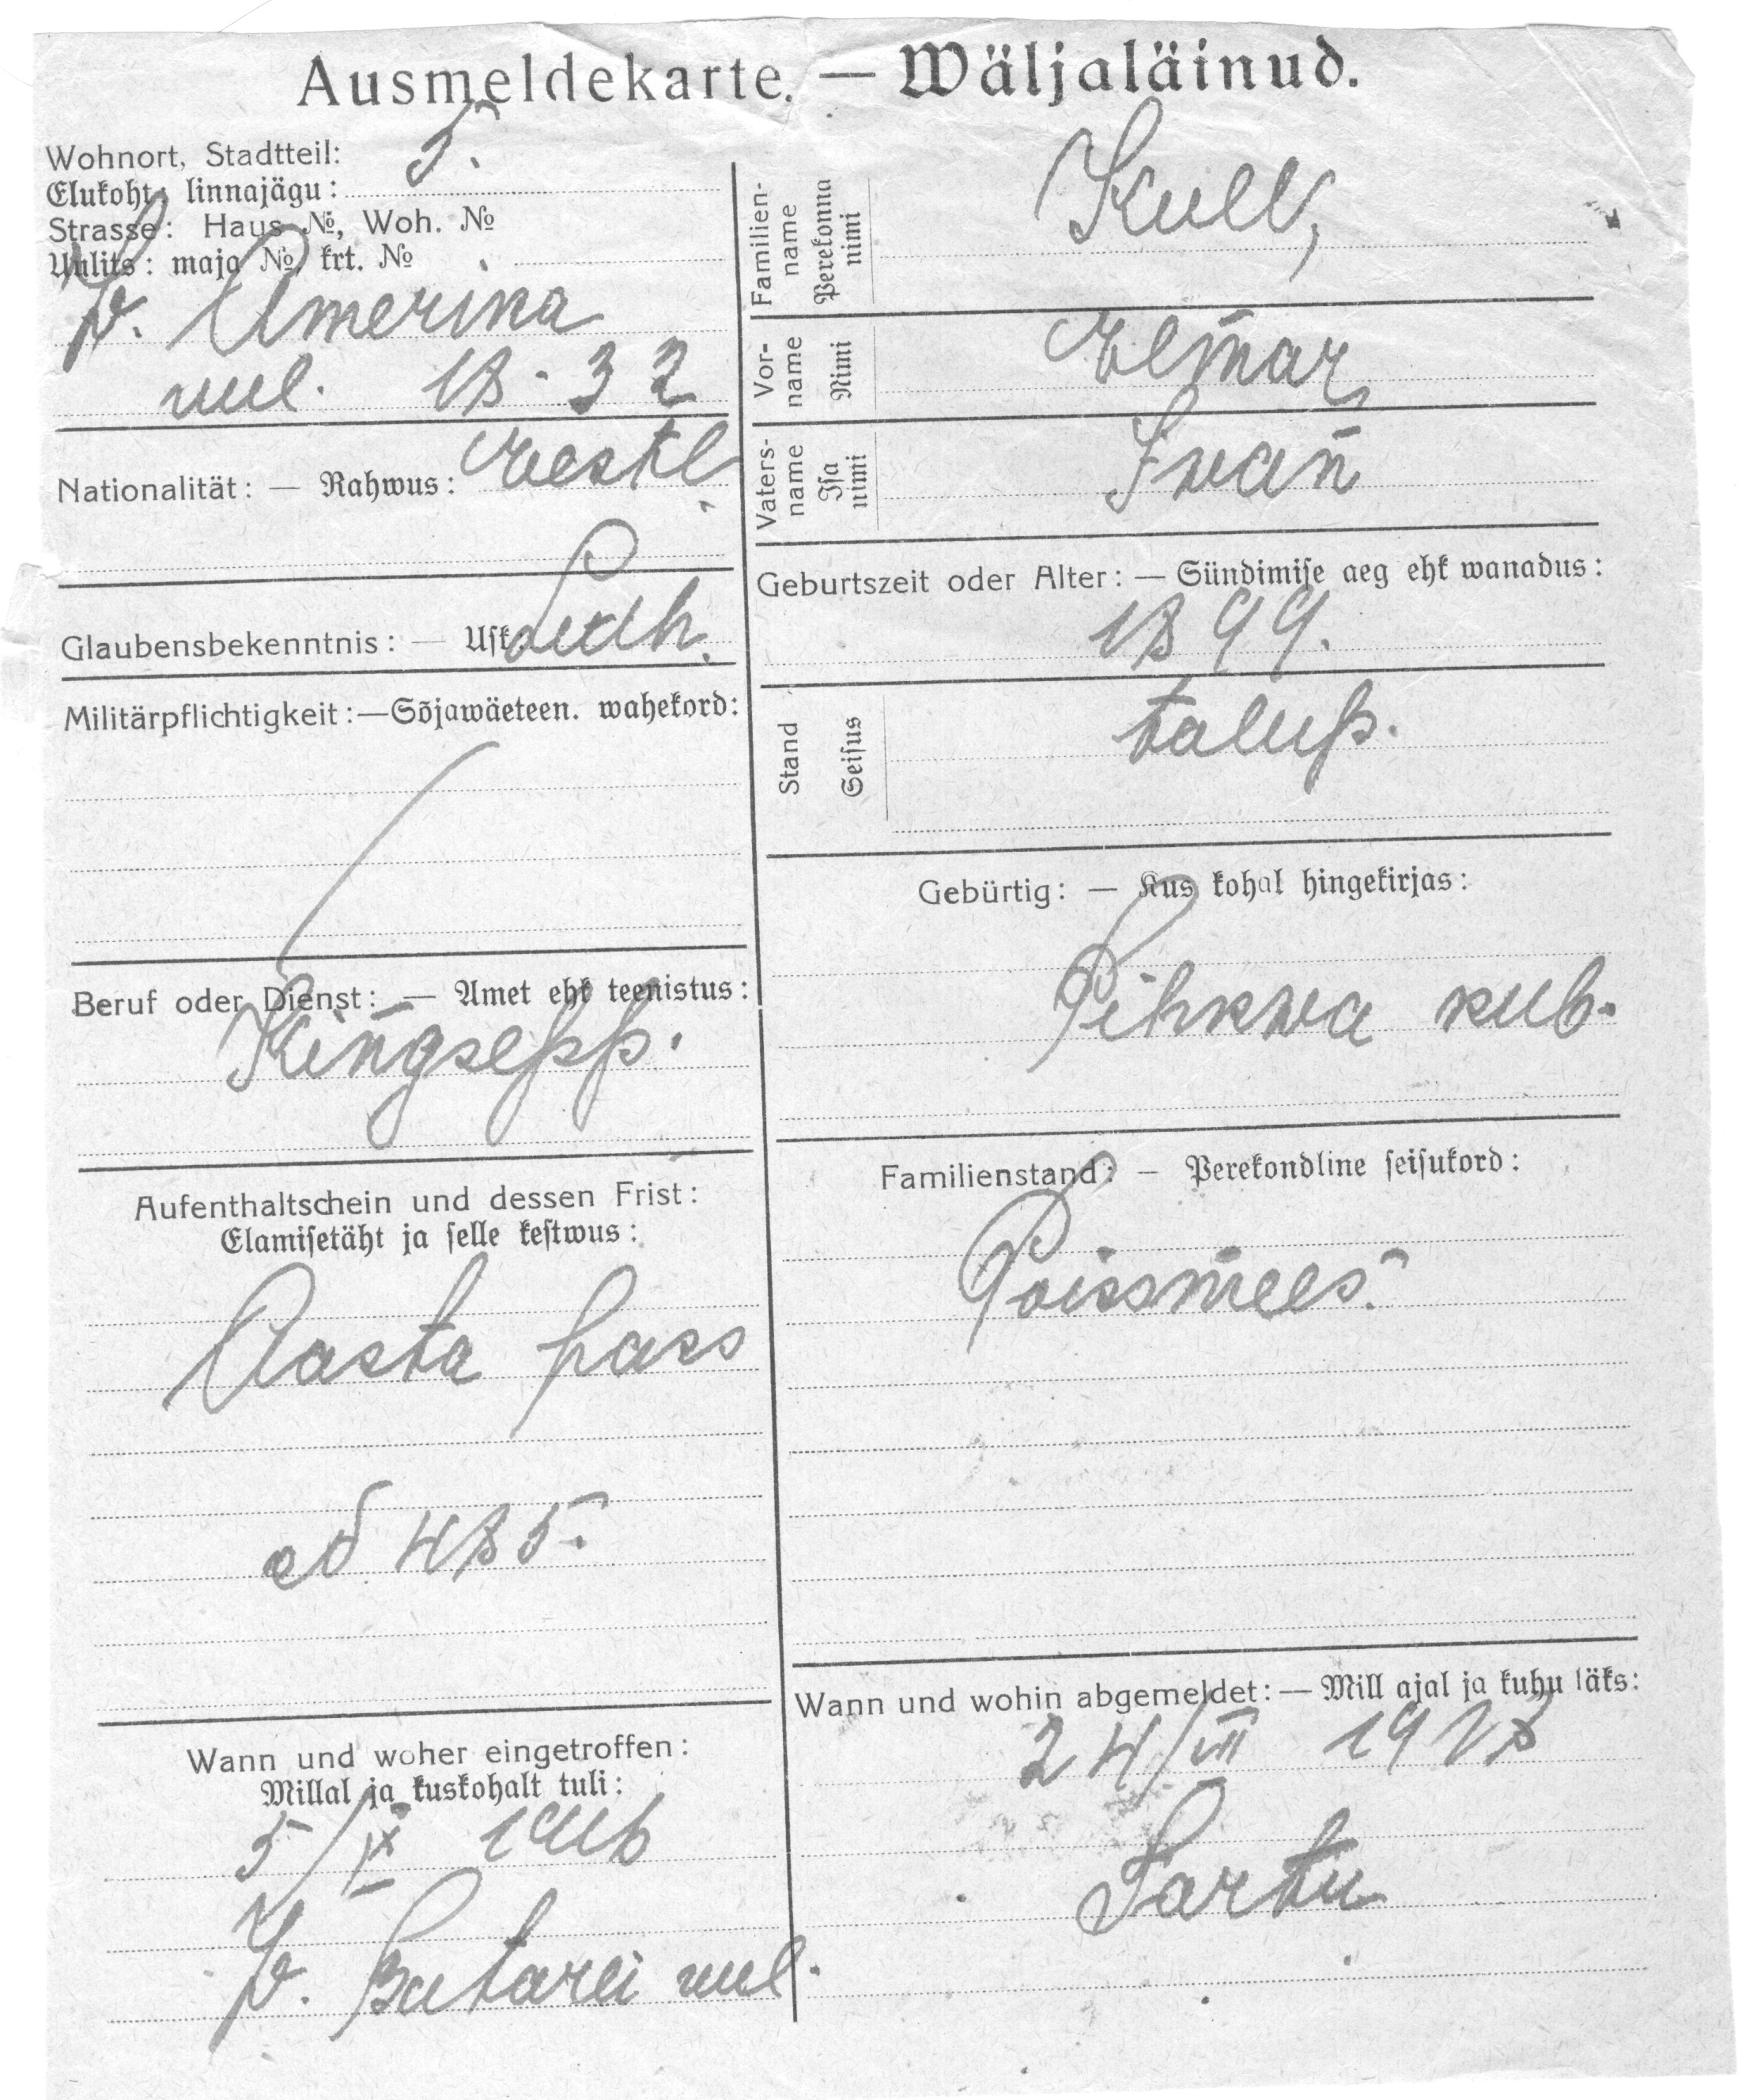 Ausmeldekarte. — Wäljaläinud.
Wohnort, Stadtteil: 5.
Elukoht, linnajägu:
Strasse: Haus №, Woh. №
Uulits: maja №, krt. №
W. Amerika
uul. 18-32
Nationalität: — Rahwus: Eestl.
Glaubensbekenntnis: — Usk: Luth.
Militärpflichtigkeit: — Sõjawäeteen. wahekord:
Beruf oder Dienst: — Amet ehk teenistus:
Kingsepp.
Aufenthaltschein und dessen Frist:
Elamisetäht ja selle kestwus:
Aasta pass
485.
Wann und woher eingetroffen:
Millal ja kuskohalt tuli:
5/IX
W. Patarei uul.
Familien-
name
Perekonna
nimi
Kull,
Vor-
name
Nimi
Elmar
Vaters-
name
Isa
nimi
Iwan
Geburtszeit oder Alter: — Sündimise aeg ehk wanadus:
1899.
Stand
Seisus
talup.
Gebürtig: — Kus kohal hingekirjas:
Pihkwa kub.
Familienstand: — Perekondline seisukord:
Poissmees.
Wann und wohin abgemeldet: — Mill ajal ja kuhu läks:
24/VII
Tartu